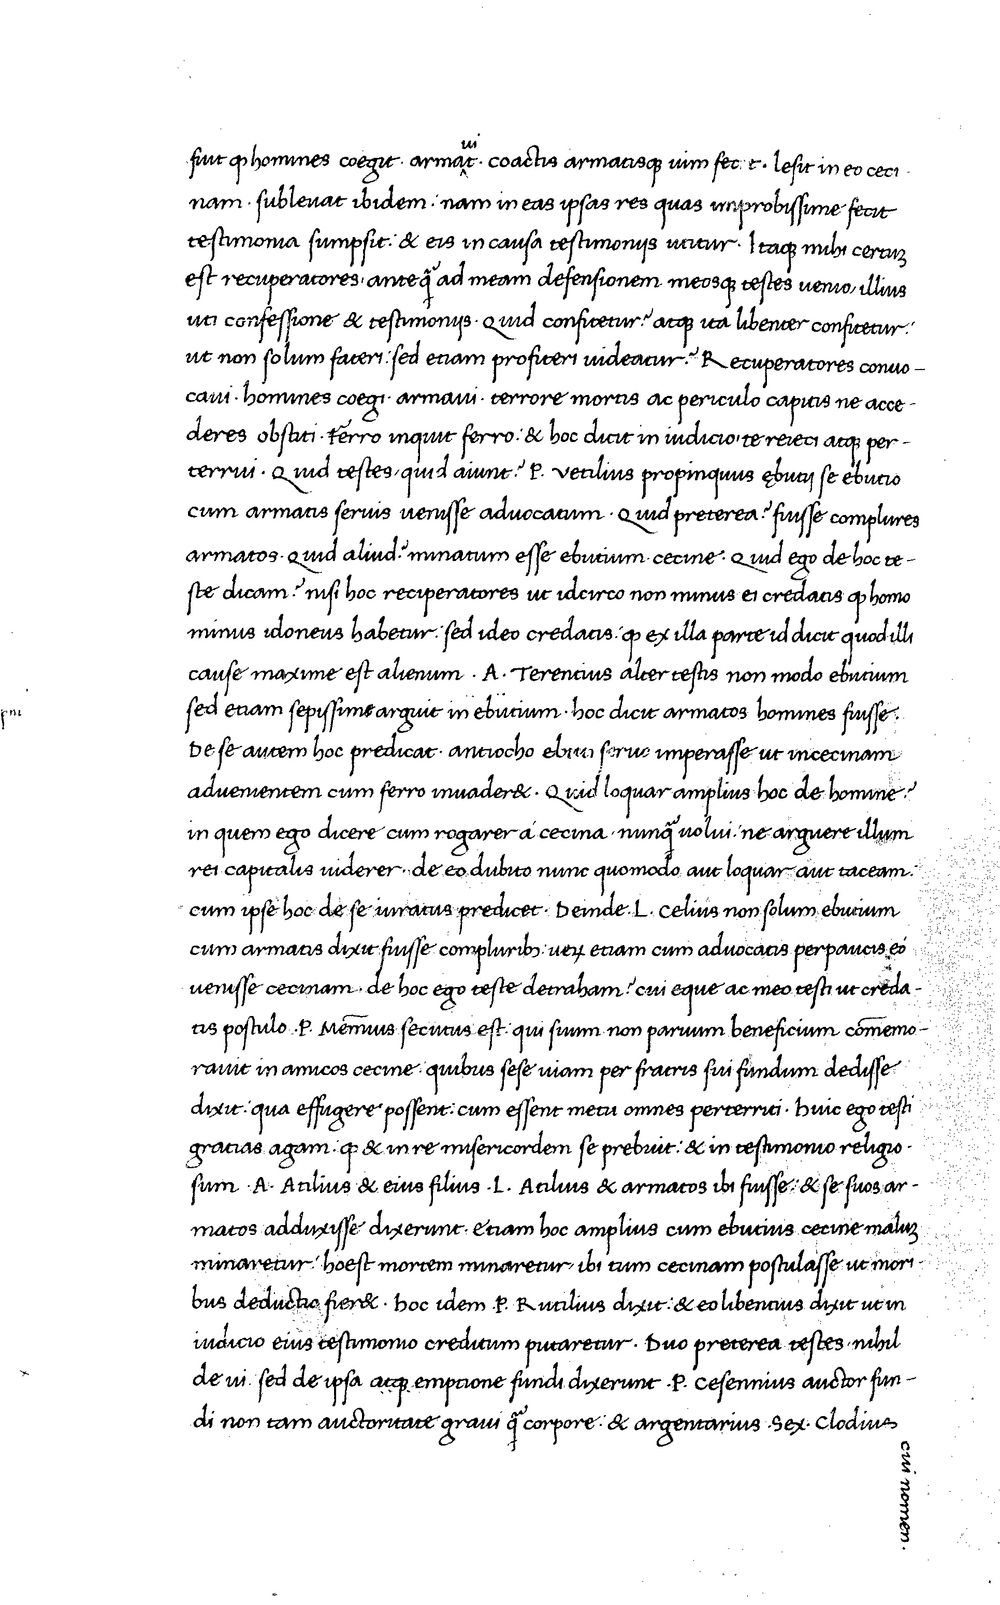 fuit ꝙ homines coegit · armat · coactis armatisqꝫ uim fecit · lesit in eo ceci
ui
nam · subleuat ibidem : nam in eas ipsas res quas improbissime fecit
testimonia sumpsit : & eis in causa testimonijs utitur · Itaqꝫ mihi certuꝫ
est recuperatores, anteq̃ ad meam defensionem meosqꝫ testes uenio, illius
uti confessione & testimonijs · Quid confitetur? atqꝫ ita libenter confitetur :
ut non solum fateri : sed etiam profiteri uideatur? Recuperatores conuo-
caui · homines coegi · armaui · terrore mortis ac periculo capitis ne acce-
deres obstiti · Ferro inquit ferro : & hoc dicit in iudicio, te reieci atqꝫ per-
terrui · Quid testes, quid aiunt? P. Vetilius propinquus ębutij se ebutio
cum armatis seruis uenisse aduocatum · Quid preterea? fuisse complures
armatos · Quid aliud? minatum esse ebutium cecine · Quid ego de hoc te-
ste dicam? nisi hoc reciperatores ut idcirco non minus ei credatis ꝙ homo
minus idoneus habetur : sed ideo credatis : ꝙ ex illa parte id dicit quod illi
cause maxime est alienum · A. Terentius alter testis non modo ebutium
sed etiam sepissime arguit in ebutium · hoc dicit armatos homines fuisse.
De se autem hoc predicat · antiocho ebutii seruo imperasse ut in cecinam
aduenientem cum ferro inuader& · Quid loquar amplius hoc de homine?
in quem ego dicere cum rogarer á cecina · nunq̃ uolui : ne arguere illum
rei capitalis uiderer · de eo dubito nunc quomodo aut loquar aut taceam :
cum ipse hoc de se iuratus predicet · Deinde L. Celius non solum ebutium
cum armatis dixit fuisse compluribꝫ : ueꝝ etiam cum aduocatis perpaucis eó
uenisse cecinam · de hoc ego teste detraham? cui eque ac meo testi ut creda-
tis postulo · P. Mem̄ius secutus est : qui suum non paruum beneficium com̄emo-
rauit in amicos cecine : quibus sese uiam per fratris sui fundum dedisse
dixit : qua effugere possent : cum essent metu omnes perterriti · Huic ego testi
gratias agam : ꝙ & in re misericordem se prebuit : & in testimonio religio-
sum · A. Atilius & eius filius · L. Atilius & armatos ibi fuisse : & se suos ar-
matos adduxisse dixerunt · etiam hoc amplius cum ebutius cecine maluꝫ
minaretur : hoest mortem minaretur, ibi tum cecinam postulasse ut mori-
bus deductio fier& · hoc idem P. Rutilius dixit : & eo libentius dixit ut in
iudicio eius testimonio creditum putaretur · Duo preterea testes, nihil
de ui sed de ipsa atqꝫ emptione fundi dixerunt · P. Cesennius auctor fun-
di non tam auctoritate graui q̃ corpore : & argentarius Sex. Clodius
cui nomen.